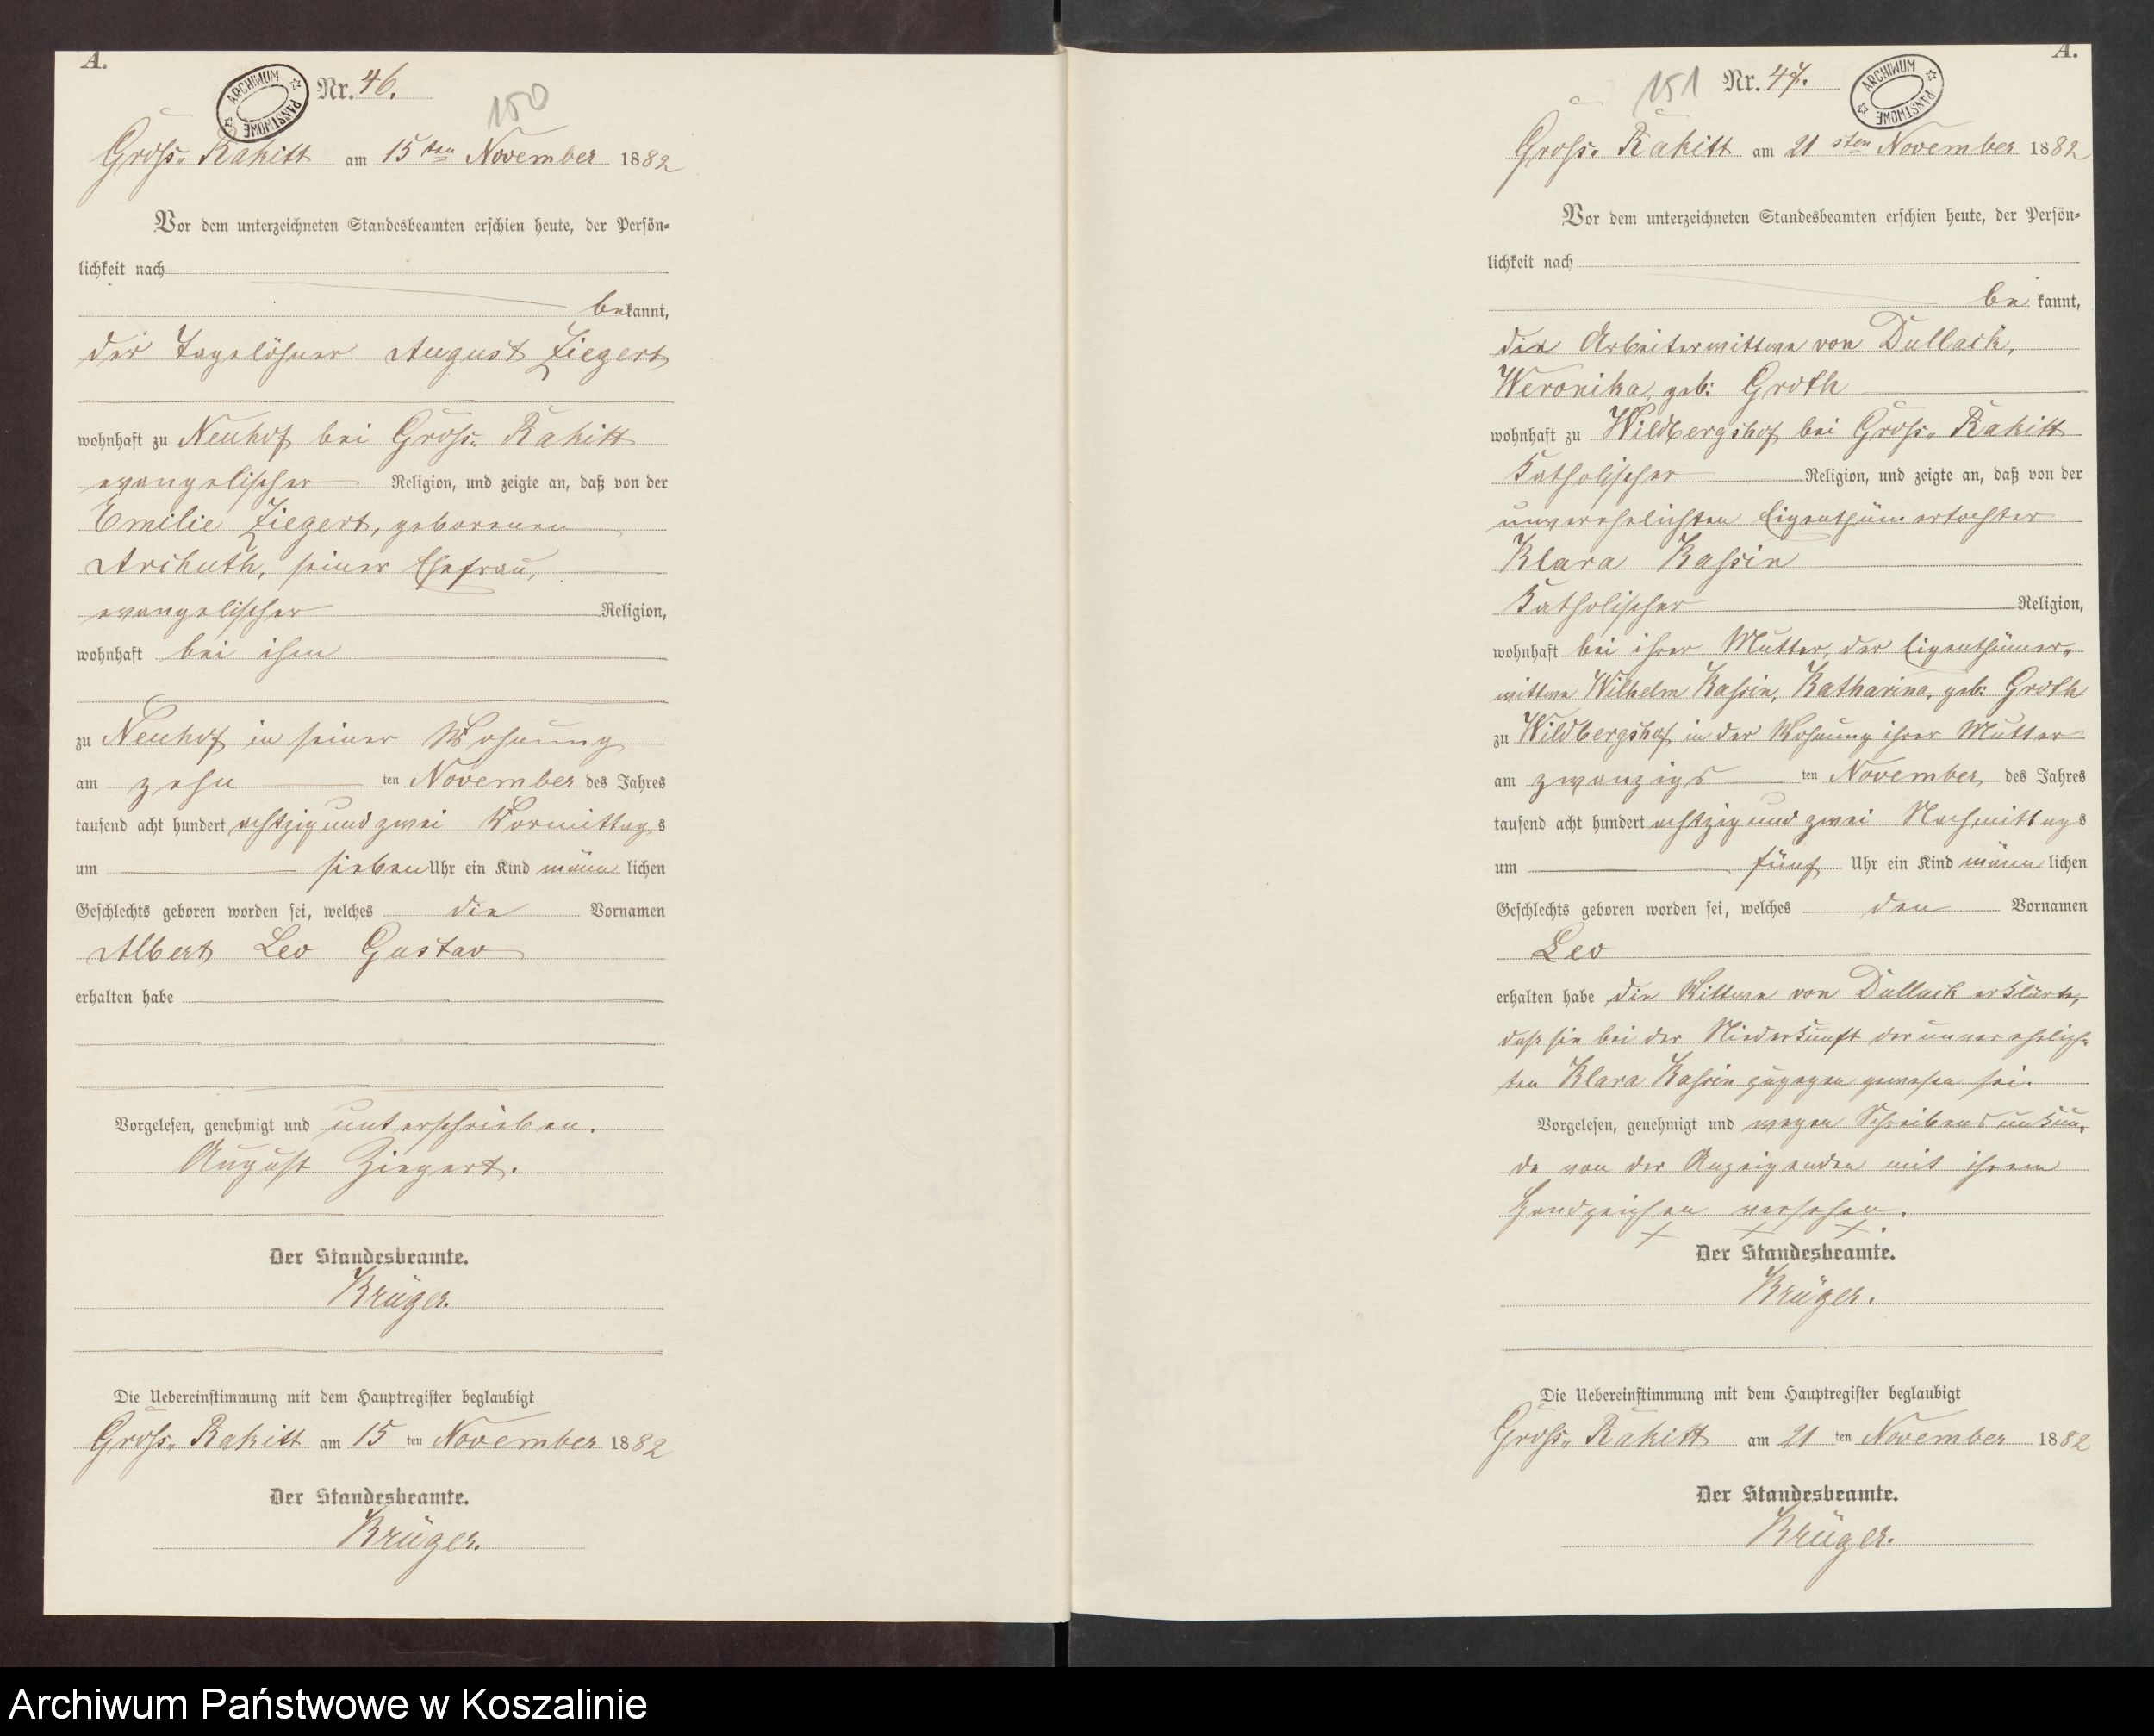 A.
ARCHIWUM PAŃSTWOWE
Nr. 46.
150
Gross- Rakitt am 15ten November 1882
Vor dem unterzeichneten Standesbeamten erschien heute, der Persön-
lichkeit nach
bekannt,
der Tagelöhner August Ziegert
wohnhaft zu Neuhof bei Gross- Rakitt
evangelischer Religion, und zeigte an, daß von der
Emilie Ziegert, geborenen
Archuth, seiner Ehefrau,
evangelischer Religion,
wohnhaft bei ihm
zu Neuhof in seiner Wohnung
am zehn ten November des Jahres
tausend acht hundert achtzig und zwei Vormittags
um sieben Uhr ein Kind männlichen
Geschlechts geboren worden sei, welches die Vornamen
Albert Leo Gustav
erhalten habe
Vorgelesen, genehmigt und unterschrieben.
August Ziegert.
Der Standesbeamte.
Krüger.
Die Uebereinstimmung mit dem Hauptregister beglaubigt
Gross- Rakitt am 15 ten November 1882
Der Standesbeamte.
Krüger.
A.
151
Nr. 47.
ARCHIWUM PAŃSTWOWE
Gross- Rakitt am 21sten November 1882
Vor dem unterzeichneten Standesbeamten erschien heute, der Persön-
lichkeit nach
bekannt,
die Arbeiterwittwe von Dullack,
Weronika, geb: Groth
wohnhaft zu Wildbergshof bei Gross- Rakitt
Katholischer Religion, und zeigte an, daß von der
unverehelichten Eigenthümertochter
Klara Kassin
Katholischer Religion,
wohnhaft bei ihrer Mutter, der Eigenthümer-
wittwe Wilhelm Kassin, Katharina, geb: Groth
zu Wildbergshof, in der Wohnung ihrer Mutter
am zwanzigs ten November, des Jahres
tausend acht hundert achtzig und zwei Nachmittags
um fünf Uhr ein Kind männlichen
Geschlechts geboren worden sei, welches den Vornamen
Leo
erhalten habe die Wittwe von Dullack erklärte,
dass sie bei der Niederkunft der unverehelich-
ten Klara Kassin zugegen gewesen sei.
Vorgelesen, genehmigt und wegen Schreibensunkun-
de von der Anzeigenden mit ihrem
Handzeichen versehen.
X X X.
Der Standesbeamte.
Krüger.
Die Uebereinstimmung mit dem Hauptregister beglaubigt
Gross- Rakitt am 21 ten November 1882
Der Standesbeamte.
Krüger.
Archiwum Państwowe w Koszalinie